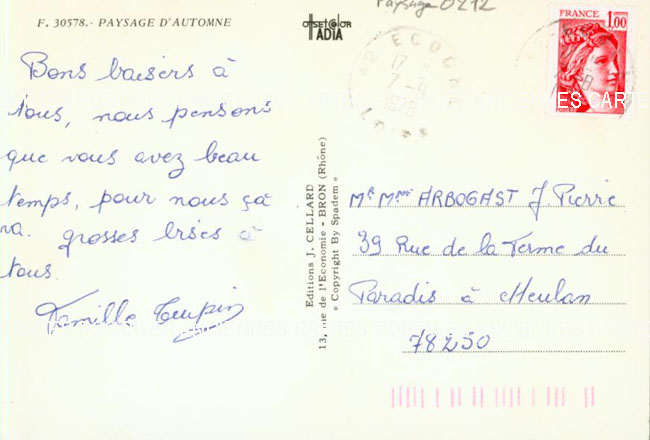 Paysage 0212
F. 30578.- PAYSAGE D'AUTOMNE
OFFSET COLOR
IADIA
FRANCE
1,00
17
7-8
1978
Bons baisers à
tous, nous pensons
que vous avez beau
temps, pour nous çà
va. grosses bises à
tous.
Famille Teupin
Editions J. CELLARD
13, rue de l'Economie - BRON (Rhône)
« Copyright By Spadem »
Mr Mme ARBOGAST J. Pierre
39 Rue de la Ferme du
Paradis à Meulan
78250
CARTES POSTALES ANCIENNES